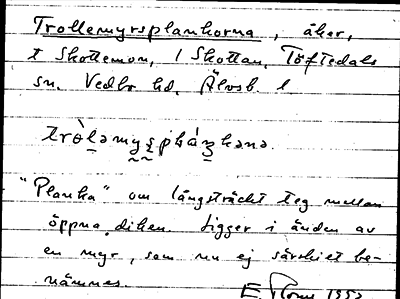 Trollemyrsplankorna, åker,
t Skottemon, 1 Skottan, Töftedals
sn. Vedbo hd. Älvsb. l
"Planka" om långsträckt teg mellan
öppna diken. Ligger i änden av
en myr, som nu ej särskiet be-
nämnes.
E. 1953